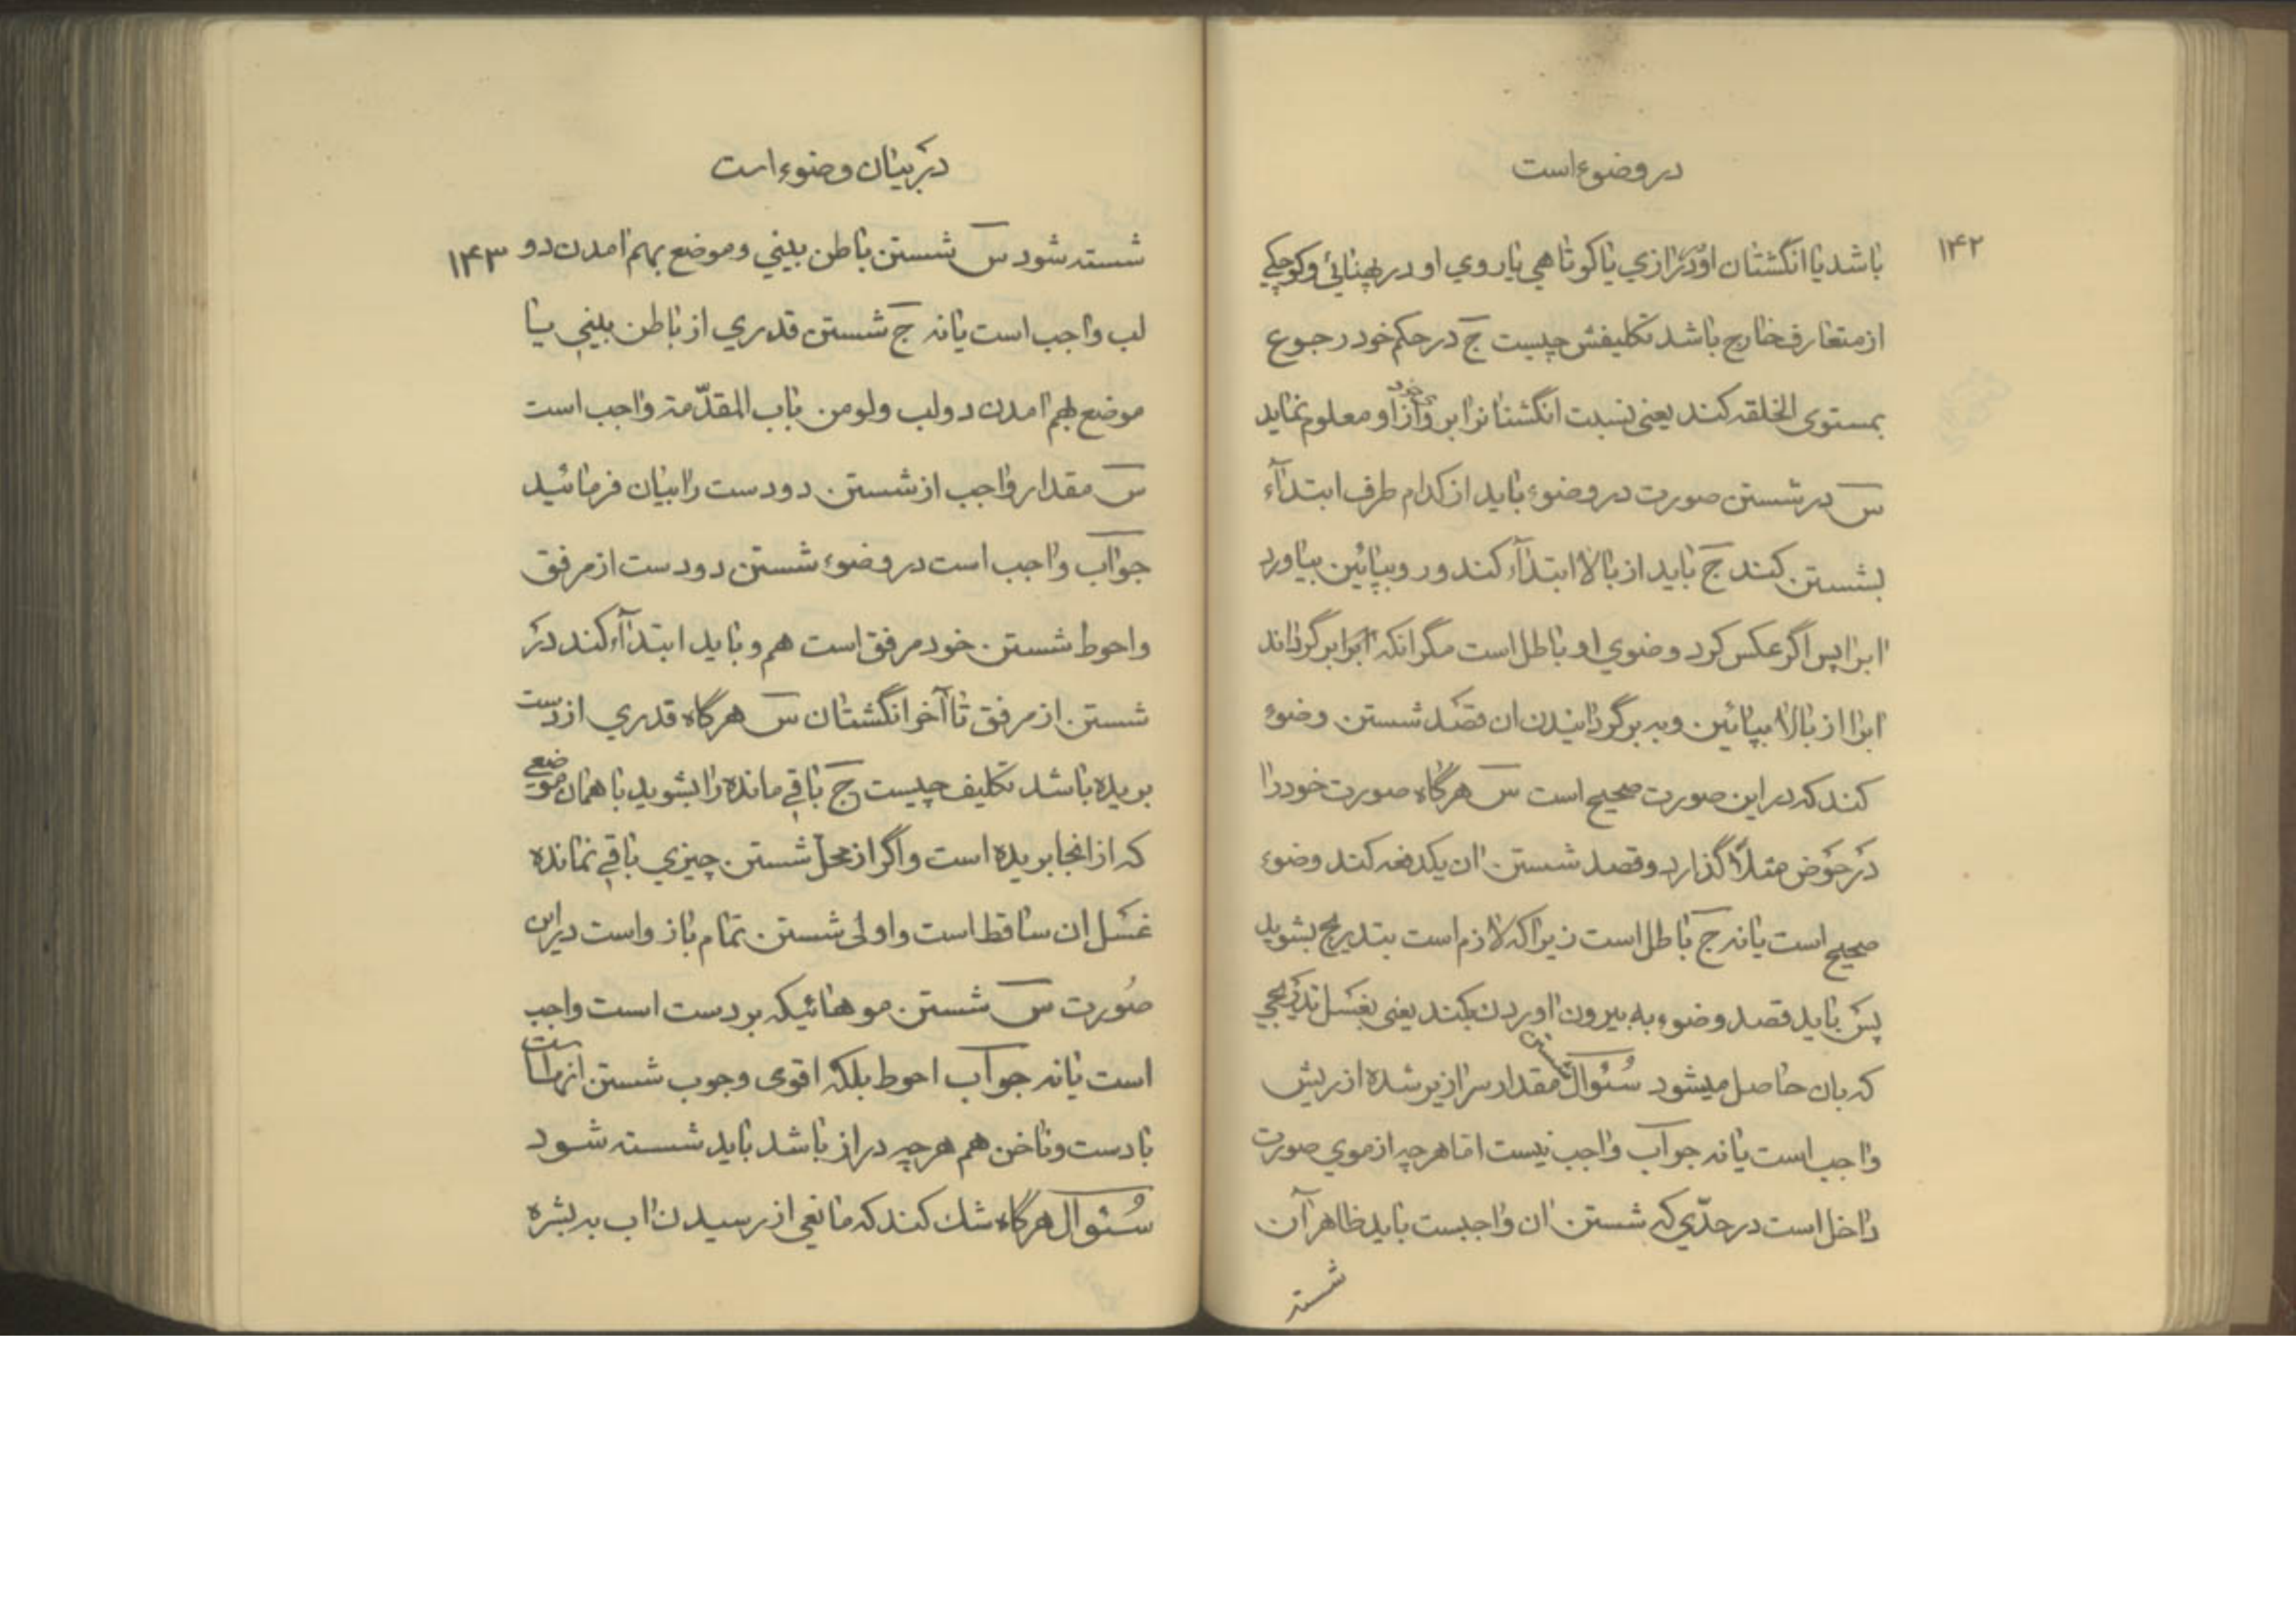 در وضوء است
۱۴۲
باشد یا انگشتان او در درازي یا کوتاهي یا روي او در پهنائي و کوچکي
از متعارف خارج باشد تکلیفش چیست ج در حکم خود رجوع
بمستوى الخلقه کند یعنى نسبت انگشتانرا بروى او معلوم نماید
س در شستن صورت در وضوء باید از کدام طرف ابتدآء
بشستن کند ج باید از بالا ابتدآء کند و رو بپائین بیاورد
ابرا پس اگر عکس کرد وضوي او باطل است مگر انکه ابرا برگرداند
ابرا از بالا بپائین و به برگردانیدن ان قصد شستن وضوء
کند که در این صورت صحیح است س هرگاه صورت خود را
در حوض مثلاً گذارد و قصد شستن ان یکدفعه کند وضوء
صحیح است یا نه ج باطل است زیرا که لازم است بتدریج بشوید
پس باید قصد وضوء به بیرون اوردن بکند یعنى بغسل تدریجي
که بان حاصل میشود سئوال شستن مقدار سرازیر شده از ریش
واجب است یا نه جواب واجب نیست اما هرچه از موي صورت
داخل است در حدّي که شستن ان واجبست باید ظاهر آن
شسته
در بیان وضوء است
۱۴۳
شسته شود س شستن باطن بیني و موضع بهم امدن دو
لب واجب است یا نه ج شستن قدري از باطن بیني یا
موضع بهم امدن دو لب ولو من باب المقدّمة واجب است
س مقدار واجب از شستن دو دست را بیان فرمائید
جواب واجب است در وضوء شستن دو دست از مرفق
و احوط شستن خود مرفق است هم و باید ابتدآء کند در
شستن از مرفق تا آخر انگشتان س هرگاه قدري از دست
بریده باشد تکلیف چیست ج باقي مانده را بشوید با همان موضعي
که از انجا بریده است و اگر از محل شستن چیزي باقي نمانده
غسل ان ساقط است و اولى شستن تمام بازو است در این
صورت س شستن موهائیکه بر دست است واجب
است یا نه جواب احوط بلکه اقوى وجوب شستن انها است
با دست و ناخن هم هرچه دراز باشد باید شسته شود
سئوال هرگاه شك کند که مانعي از رسیدن اب به بشره